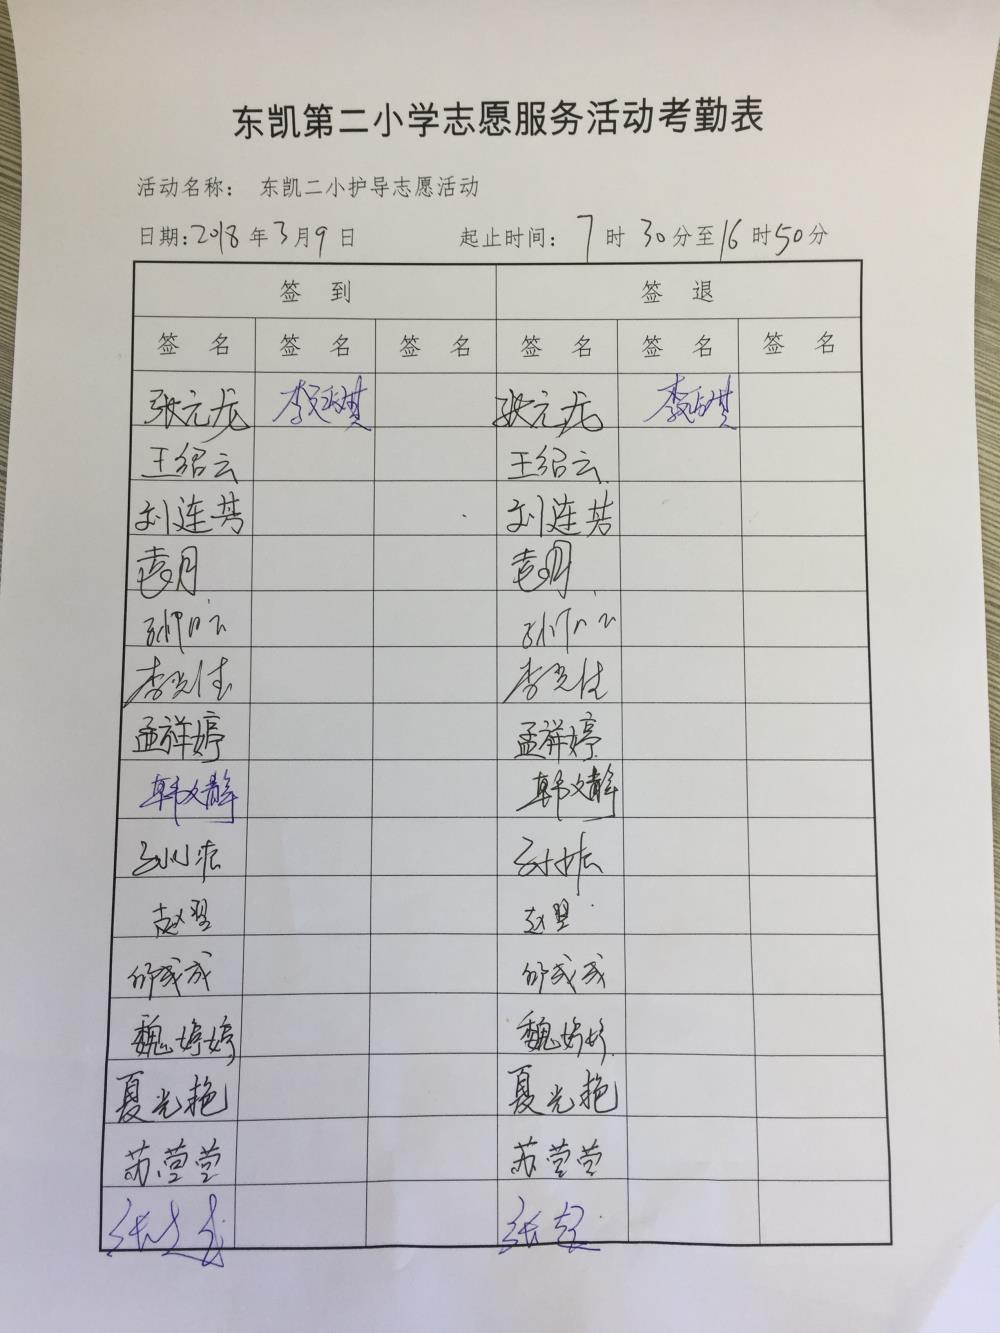 东凯第二小学志愿服务活动考勤表
活动名称： 东凯二小护导志愿活动
日期：2018年3月9日 起止时间： 7时30分至16时50分
签 到 签 退
签 名 签 名 签 名 签 名 签 名 签 名
张元龙 张元龙
王绍云 王绍云
刘连芳 刘连芳
袁月 袁月
李光佳 李光佳
孟祥婷 孟祥婷
韩文静 韩文静
赵翌 赵翌
邱成成 邱成成
魏婷婷 魏婷婷
夏光艳 夏光艳
苏莹莹 苏莹莹